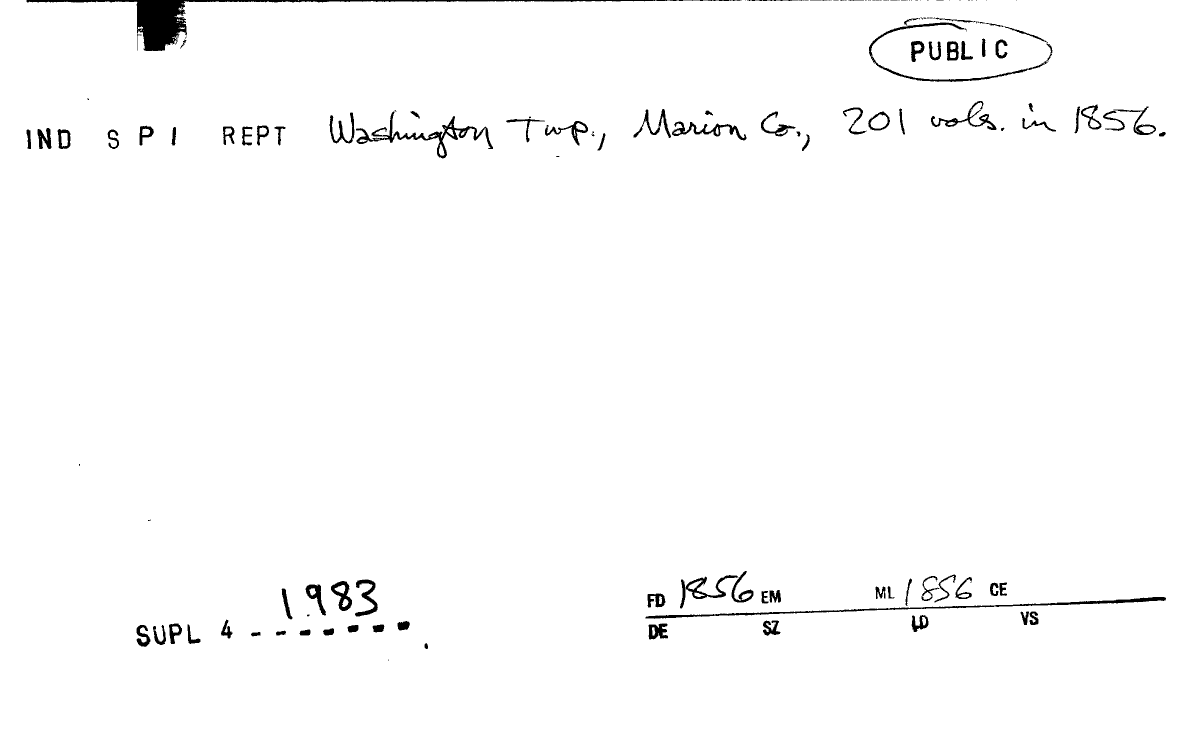 PUBLIC
IND S P I REPT Washington Twp., Marion Co., 201 vols. in 1856.
1983
SUPL 4 - - - - - - - .
FD 1856 EM ML 1856 CE
DE SZ LD VS